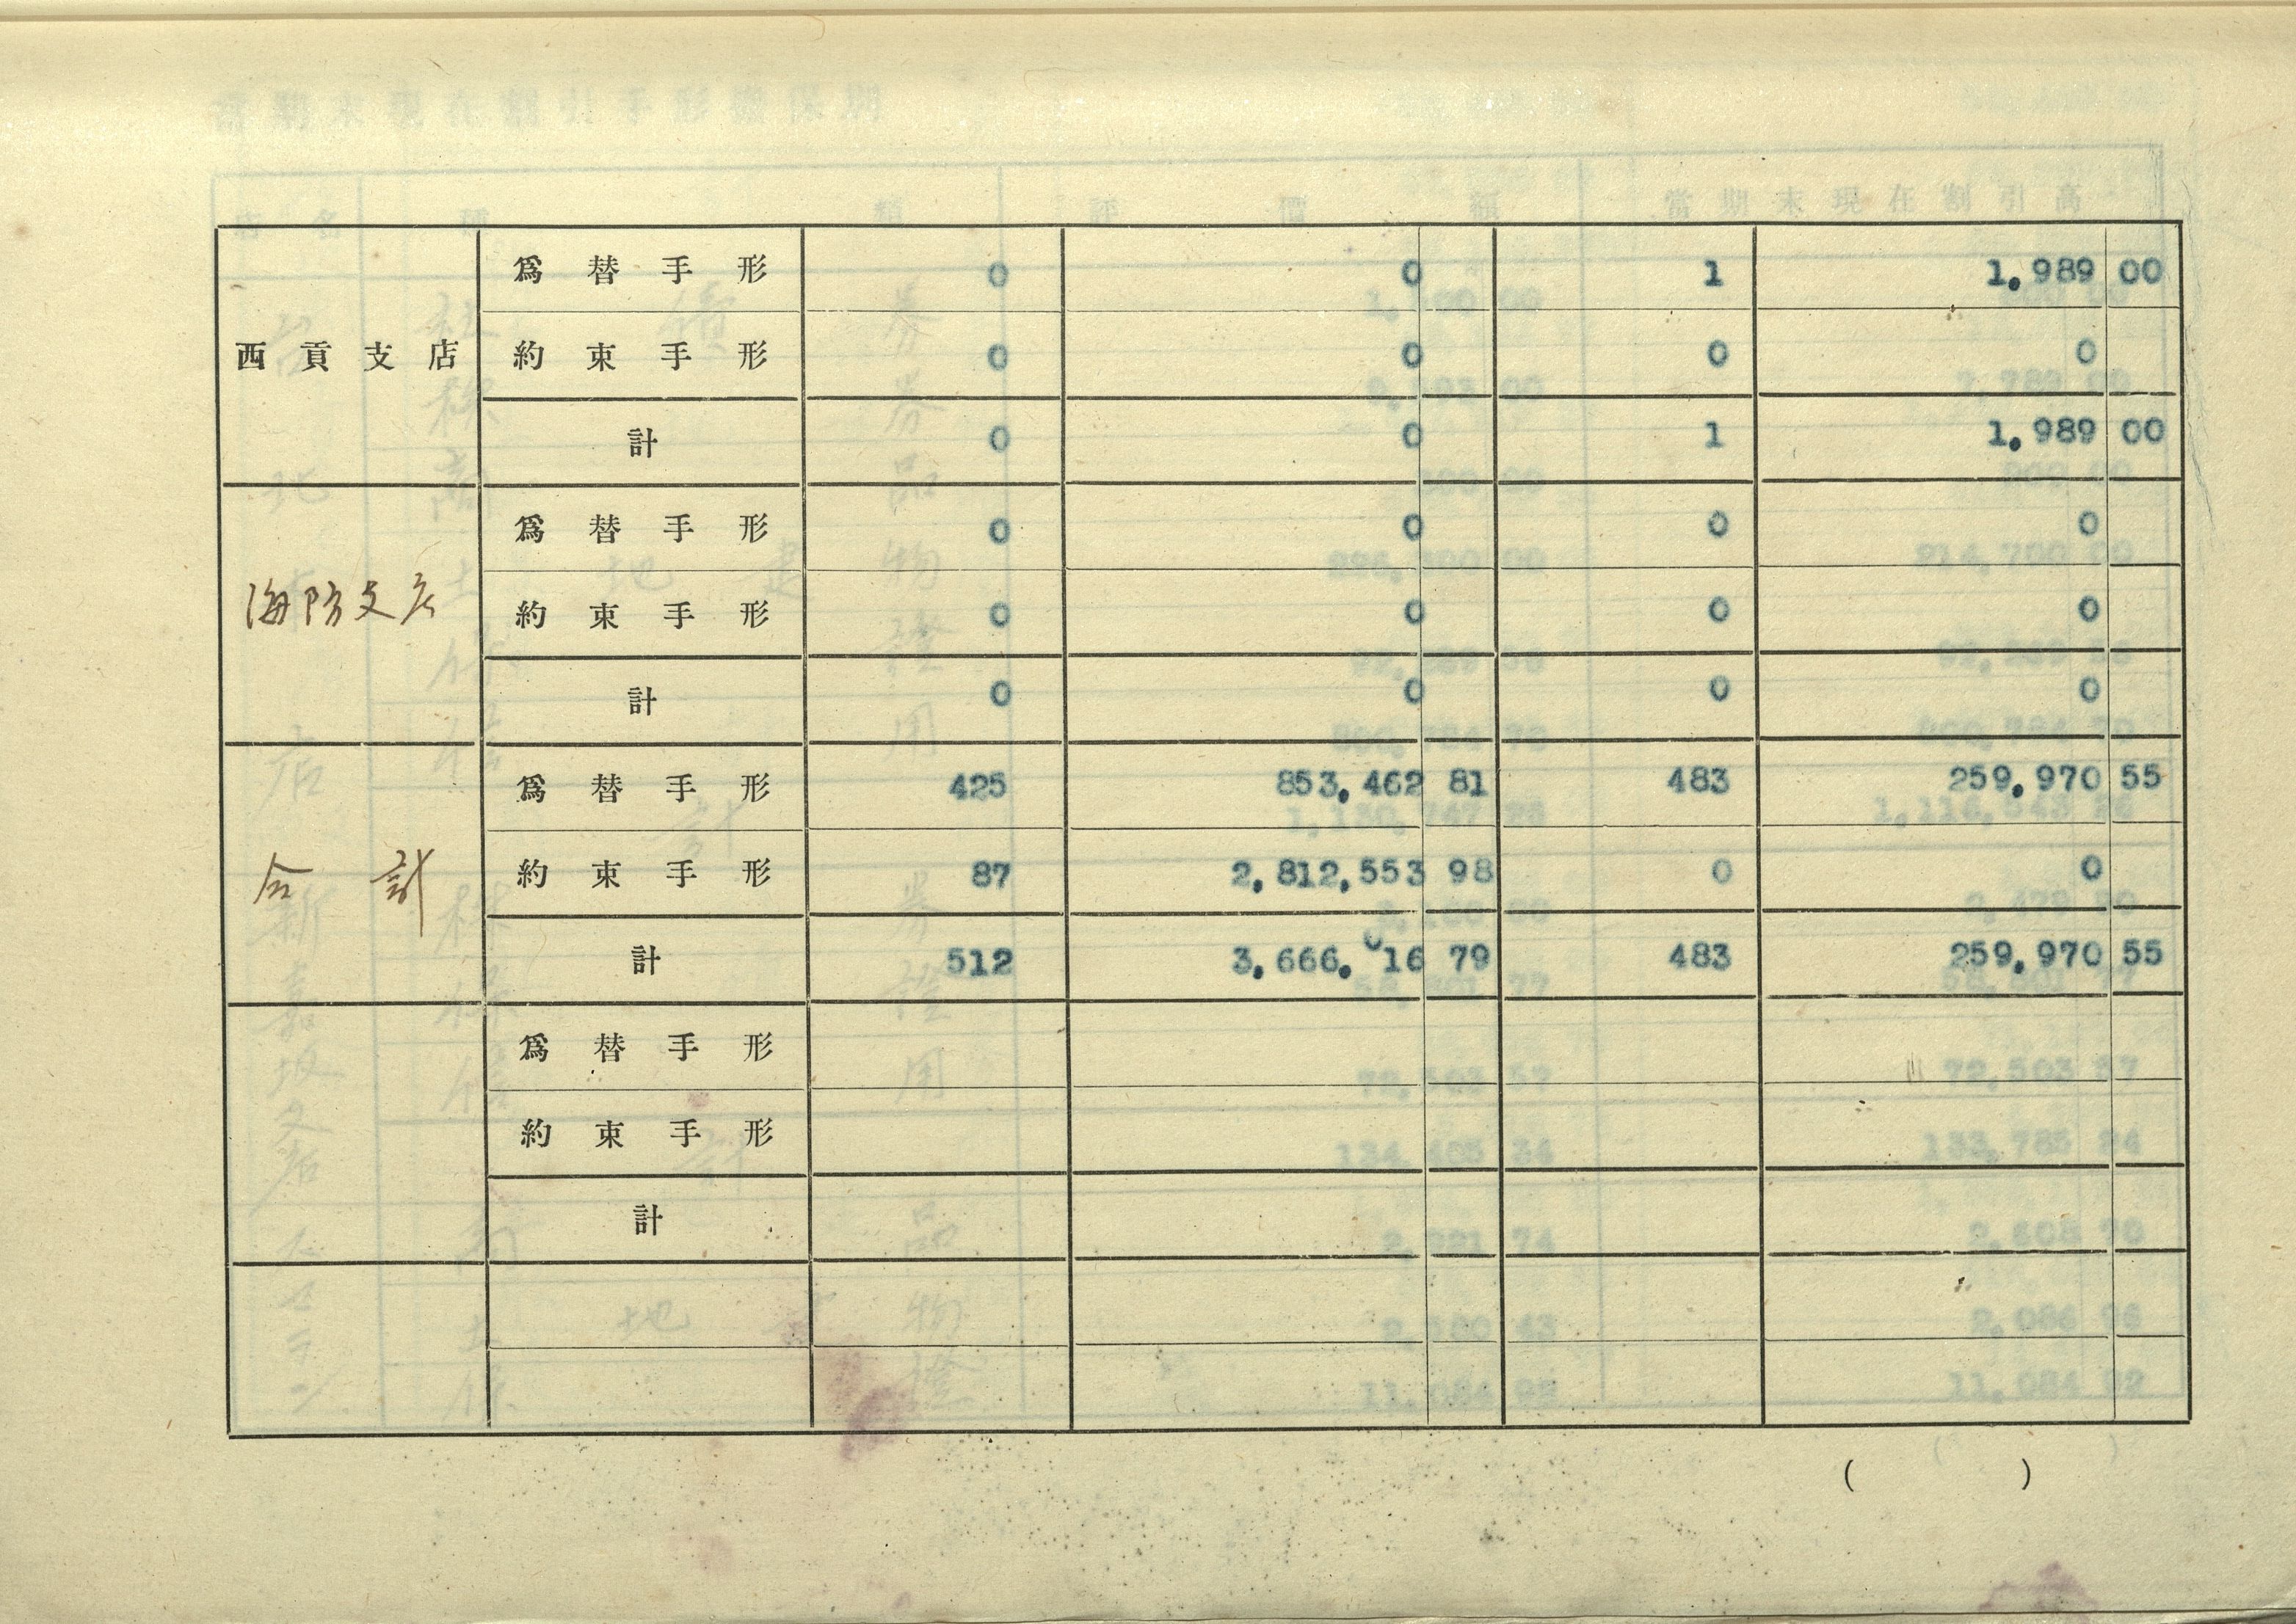 西貢支店 爲替手形 0 0 1 1.989 00
約束手形 0 0 0 0
計 0 0 1 1.989 00
海防支店 爲替手形 0 0 0 0
約束手形 0 0 0 0
計 0 0 0 0
合計 爲替手形 425 853.462 81 483 259.970 55
約束手形 87 2,812,553 98 0 0
計 512 3,666.016 79 483 259.970 55
爲替手形
約束手形
計
( )